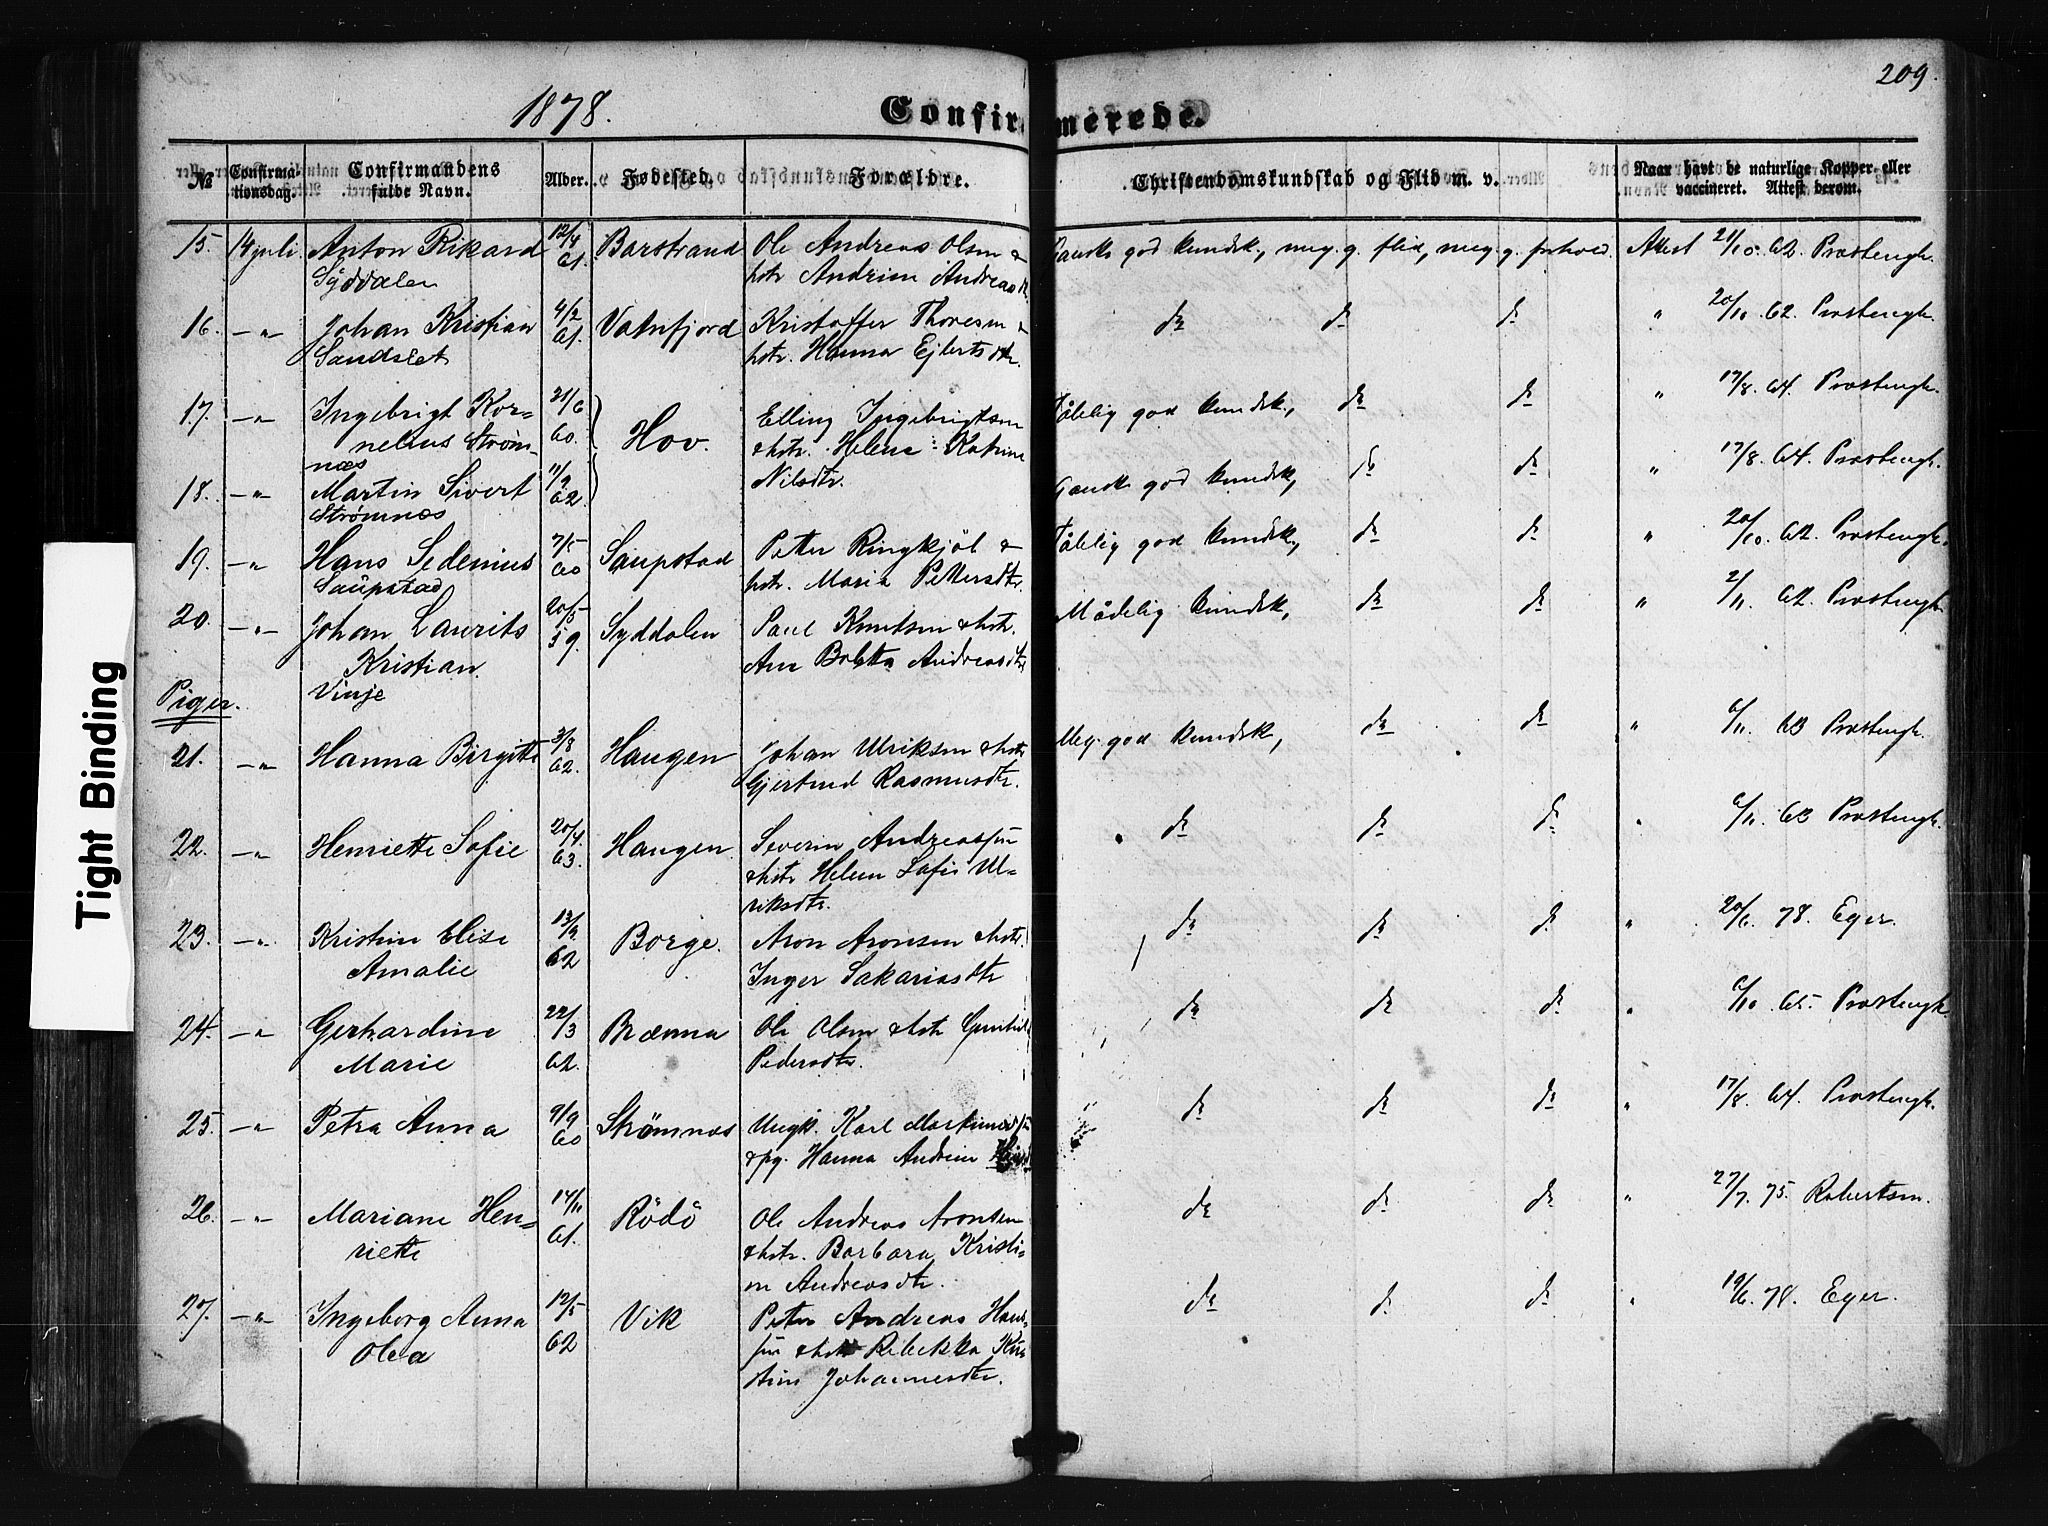 1878.
Confirmerede.
209.
№
Confirmationsdag.
Confirmandens fulde Navn.
Alder.
Fødested.
Forældre.
Christendomskundskab og Flid m. v.
Naar havt de naturlige Kopper eller vaccineret. Attest derom.
15. 14 juli. Anton Rikard 12/4 61. Barstrand Ole Andreas Olsen & Ganske god kundsk., meg. g. flid, meg. g. forhold. Attest 21/10. 62. Prostengh.
Syddalen hstr Andrine Andreasdtr.
16. —"— Johan Kristian 4/2 61. Vatnfjord Kristoffer Thoresen & do do do " 20/10. 62. Prostengh.
Sandslet hstr. Hanna Ejlertsdtr.
17. —"— Ingebrigt Kor- 21/6 60. Hov. Elling Ingebrigtsen Tålelig god kundsk., do do " 17/8. 64. Prostengh.
nelius Strøm- & hstr. Helene Katrine
næs Nilsdtr.
18. —"— Martin Sivert 11/2 62. Gansk god kundsk, do do " 17/8. 64. Prostengh.
Strømnæs
19. —"— Hans Sedenius 7/5 60 Saupstad Petter Ringkjøb & Tålelig god kundsk., do do " 20/10. 62. Prostengh.
Saupstad hstr. Maria Pettersdtr.
20. —"— Johan Laurits 20/5 59. Syddalen Paul Knutsen & hstr. Mådelig kundsk, do do " 2/11. 62. Prostengh.
Kristian Ane Boletta Andreasdtr
Vinje
Piger.
21. —"— Hanna Birgitte 3/8 62. Haugen Johan Ulriksen & hstr Meg. god kundsk, do do " 6/11. 63 Prostengh.
Gjertrud Rasmusdtr.
22. —"— Henriette Sofie 20/4. 63. Haugen. Severin Andreassen do do do " 6/11. 63 Prostengh.
& hstr Helene Sofie Ul-
riksdtr.
23. —"— Kristine Elise 13/9 62 Borge. Aron Aronsen & hstr. do do do " 20/6. 78. Eger.
Amalie Inger Sakariasdtr
24. —"— Gerhardine 22/3 62. Brænna Ole Olsen & hstr do do do " 6/10. 65. Prostengh.
Marie Pedersdtr.
25. —"— Petra Anna 9/9 60 Strømnæs Ungk. Karl do do do " 17/8. 64. Prostengh.
& pg. Hanna Andrine
26. —"— Mariane Hen- 14/11 61. Rödö Ole Andreas Aronsen do do do " 27/7. 75. Robertsen.
riette & hstr. Barbara Kristi-
ne Andreasdtr.
27. —"— Ingeborg Anna 12/5 62 Vik Petter Andreas Han- do do do " 19/6. 78. Eger.
Olea sen & hstr Rebekka Kris
tine Johannesdtr.
Tight Binding